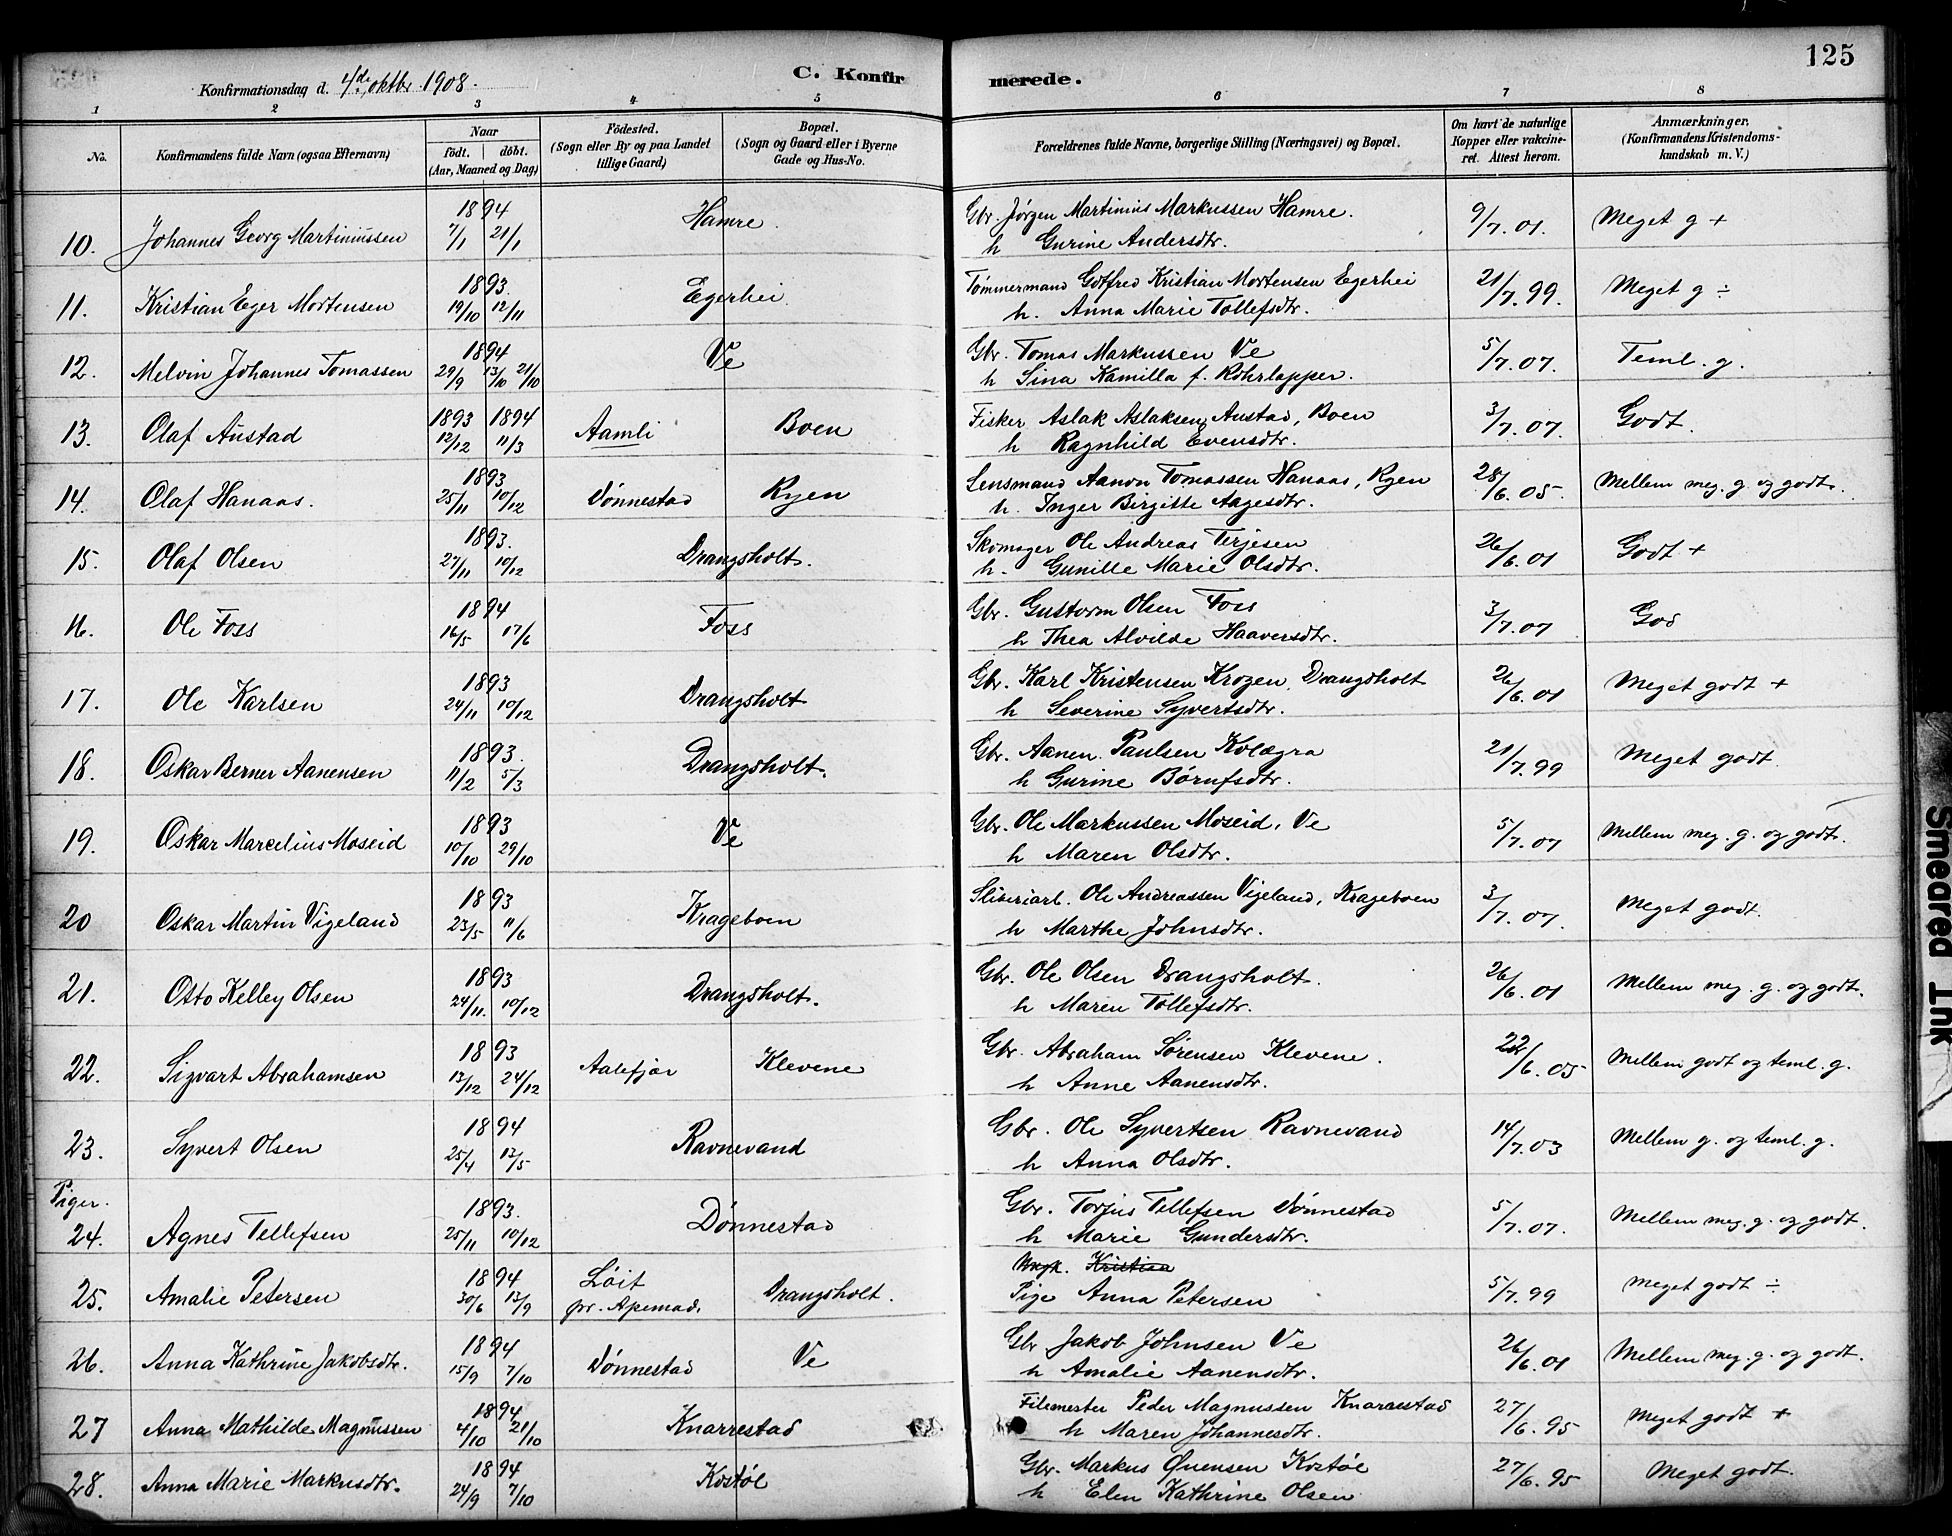 125
Konfirmationsdag d. 4de oktbr 1908.
C. Konfirmerede.
1 2 3 4 5 6 7 8
No.
Konfirmandens fulde Navn (ogsaa Efternavn)
Naar
födt. döbt.
(Aar, Maaned og Dag)
Födested.
(Sogn eller By og paa Landet
tillige Gaard)
Bopæl.
(Sogn og Gaard eller i Byerne
Gade og Hus-No.
Forældrenes fulde Navne, borgerlige Stilling (Næringsvei) og Bopæl.
Om havt de naturlige
Kopper eller vakcine-
ret. Attest herom.
Anmærkninger.
(Konfirmandens Kristendoms-
kundskab m. V.)
10. Johannes Georg Martiniussen 1894 7/1 21/1 Hamre. Gbr. Jørgen Martinius Markussen Hamre. 9/7. 01. Meget g +
h Gurine Andersdtr.
11. Kristian Eger Mortensen 1893. 19/10 12/11 Egerhei. Tømmermand Gotfred Kristian Mortensen Egerhei 21/7. 99. Meget g ÷
h. Anna Marie Tollefsdtr.
12. Melvin Johannes Tomassen 1894 29/9 13/10 21/10 Ve Gbr. Tomas Markussen Ve 5/7. 07. Teml. g.
h Sina Kamilla f. Rohrlapper.
13. Olaf Austad 1893 12/12 1894 11/3 Aamli Boen Fisker Aslak Aslaksen Austad, Boen 3/7. 07. Godt.
h Ragnhild Evensdtr.
14. Olaf Hanaas. 1893 25/11 10/12 Dønnestad Ryen Lensmand Aanon Tomassen Hanaas, Ryen 28/6. 05. Mellem meg. g. og godt.
h. Inger Birgitte Aagesdtr.
15. Olaf Olsen 1893. 27/11 10/12 Drangsholt. Skomager Ole Andreas Terjesen 26/6. 01 Godt +
h. Gunille Marie Olsdtr.
16. Ole Foss 1894 16/5 17/6 Foss Gbr. Gustorm Olsen Foss 3/7. 07 God
h Thea Alvilde Haaversdtr.
17. Ole Karlsen 1893 24/11 10/12 Drangsholt Gbr. Karl Kristensen Krogen, Drangsholt 26/6. 01 Meget godt +
h Severine Syvertsdtr.
18. Oskar Berner Aanensen 1893. 11/2 5/3 Drangsholt. Gbr. Aanen Paulsen Kolægra 21/7. 99 Meget godt.
h Gurine Børufsdtr.
19. Oskar Marcelius Moseid 1893 10/10 29/10 Ve Gbr. Ole Markussen Moseid, Ve 5/7. 07 Mellem meg. g. og godt.
h Maren Olsdtr.
20 Oskar Martin Vigeland 1893 23/5 11/6 Krageboen Sliberiarb. Ole Andreassen Vigeland, Krageboen 3/7. 07. Meget godt.
h Marthe Johnsdtr.
21. Otto Kelley Olsen 1893 24/11. 10/12 Drangsholt. Gbr. Ole Olsen Drangsholt. 26/6. 01 Mellem meg. g. og godt.
h Maren Tollefsdtr.
22. Sigvart Abrahamsen 1893 13/12 24/12 Aalefjær Klevene Gbr. Abraham Sørensen Klevene. 22/6. 05 Mellem godt og teml. g.
h Anne Aanensdtr.
23. Syvert Olsen 1894 25/4 13/5 Ravnevand Gbr. Ole Syvertsen Ravnevand 14/7. 03 Mellem g. og teml. g.
h Anna Olsdtr.
Piger.
24. Agnes Tellefsen 1893. 25/11 10/12 Dønnestad Gbr. Torjus Tellefsen Dønnestad 5/7. 07. Mellem meg. g. og godt.
h Marie Gundersdtr.
Kristian
25. Amalie Petersen 1894 30/6 13/9 Løit pr. Apenrad. Drangsholt. Pige Anna Petersen 5/7. 99 Meget godt ÷
26. Anna Kathrine Jakobsdtr. 1894 15/9 7/10 Dønnestad Ve Gbr Jakob Johnsen Ve 26/6. 01 Mellem meg. g. og godt.
h Amalie Aanensdtr.
27 Anna Mathilde Magnussen 1894 4/10 21/10 Knarrestad Filemester Peder Magnussen Knarrestad 27/6. 95 Meget godt +
h Maren Johannesdtr.
28. Anna Marie Markusdtr. 1894 24/9 7/10 Kostøl Gbr. Markus Ønensen Kostøl 27/6. 95 Meget godt.
h Elen Kathrine Olsen
Smeared Ink